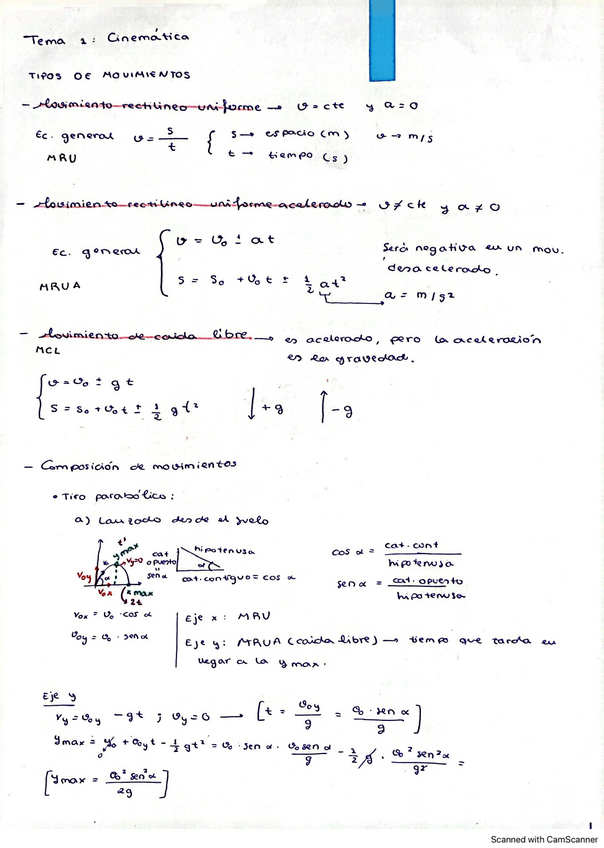 Tema 1: Cinemática
TIPOS DE MOVIMIENTOS
- Movimiento rectilíneo uniforme → v = cte y a = 0
Ec. general v = s/t { s → espacio (m) v → m/s
MRU t → tiempo (s)
- Movimiento rectilíneo uniforme acelerado → v ≠ cte y a ≠ 0
Ec. general { v = v₀ ± at Será negativa en un mov.
desacelerado.
MRUA s = s₀ + v₀t ± 1/2 at² → a = m/s²
- Movimiento de caída libre → es acelerado, pero la aceleración
MCL es la gravedad.
{ v = v₀ ± gt
s = s₀ + v₀t ± 1/2 gt² ↓ +g ↑ -g
- Composición de movimientos
• Tiro parabólico:
a) Lanzado desde el suelo
t' y max vy=0 v₀y v₀x α x max 2t
cat opuesto = sen α hipotenusa α cat. contiguo = cos α
cos α = cat. cont / hipotenusa
sen α = cat. opuesto / hipotenusa
v₀x = v₀ · cos α Eje x: MRU
v₀y = v₀ · sen α Eje y: MRUA (caída libre) → tiempo que tarda en
llegar a la y max.
Eje y
vy = v₀y - gt ; vy = 0 → [t = v₀y/g = v₀ · sen α/g]
ymax = y₀ + v₀yt - 1/2 gt² = v₀ · sen α · v₀ sen α/g - 1/2 g · v₀² sen²α/g² =
0
[ymax = v₀² sen²α/2g]
1
Scanned with CamScanner